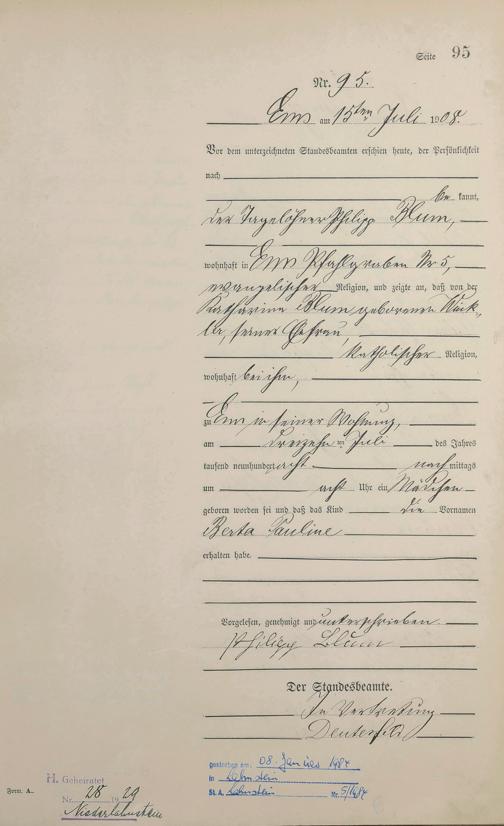 Seite 95
Nr. 95.
Ems am 15ten Juli 1908.
Vor dem unterzeichneten Standesbeamten erschien heute, der Persönlichkeit
nach
be kannt,
der Tagelöhner Philipp Blum,
wohnhaft in Ems Pfahlgraben Nr 5,
evangelischer Religion, und zeigte an, daß von der
Katharina Blum geborenen
seiner Ehefrau,
katholischer Religion,
wohnhaft bei ihm,
zu Ems in seiner Wohnung,
am dreizehn ten Juli des Jahres
tausend neunhundert acht nach mittags
um acht Uhr ein Mädchen
geboren worden sei und daß das Kind die Vornamen
Berta Pauline
erhalten habe.
Vorgelesen, genehmigt und unterschrieben
Philipp Blum
Der Standesbeamte.
In Vertretung
gestorben am: 08. Januar 1987
in Lahnstein
St. A. Lahnstein Nr. 5/1987
H. Geheiratet
Nr. 28 1929
Niederlahnstein
Form. A.